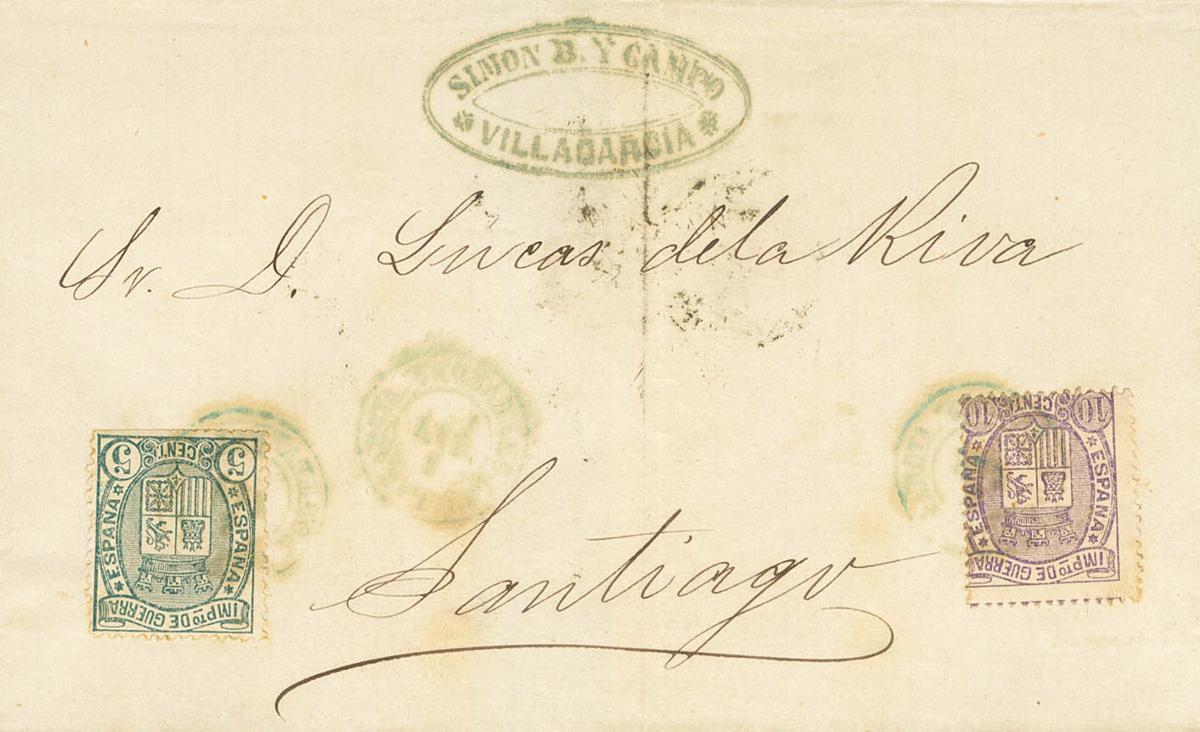 SIMON B. Y CAMPO
VILLAGARCIA
Sr. D. Lucas de la Riva
5 CENT. 5
ESPAÑA ESPAÑA
IMPTO DE GUERRA
10 CENT. 10
ESPAÑA ESPAÑA
IMPTO DE GUERRA
Santiago